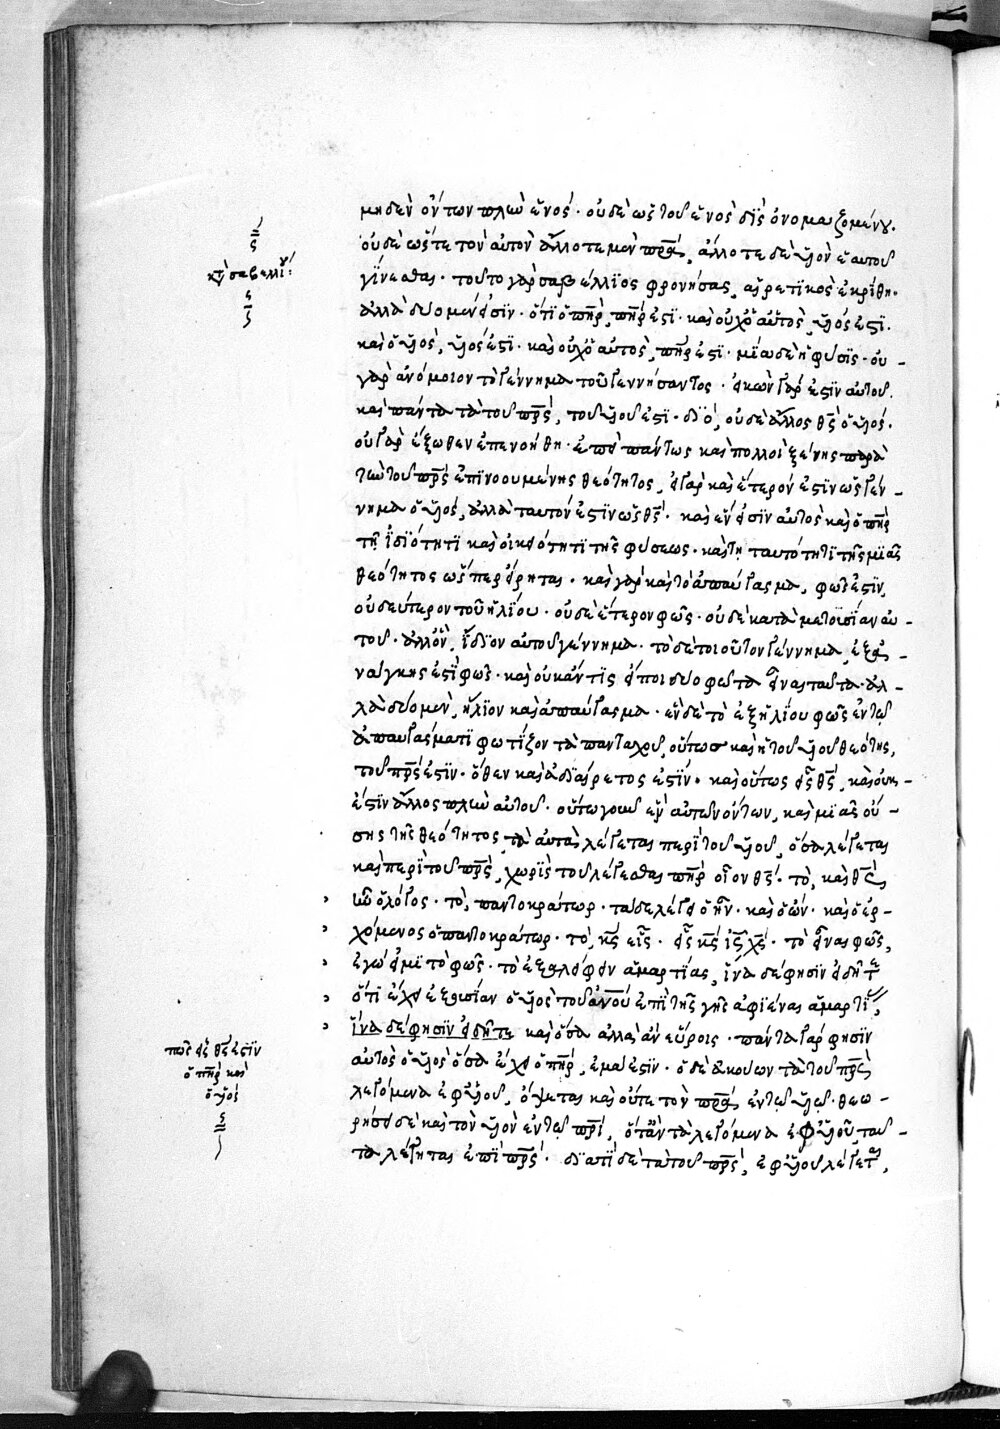 κτ σαβελλίου:
μηδὲν ὄντων πλὴν ἑνός· οὐδὲ ὡς τοῦ ἑνὸς δὶς ὀνομαζομένου.
οὐδὲ ὥστε τὸν αὐτὸν ἄλλοτε μὲν πρα, ἄλλοτε δὲ υἱὸν ἑαυτοῦ
γίνεσθαι· τοῦτο γὰρ σαβέλλιος φρονήσας, αἱρετικὸς ἐκρίθη·
ἀλλὰ δύο μέν εἰσιν· ὅτι ὁ πηρ, πηρ ἐστι· καὶ οὐχ ὁ αὐτὸς, υἱός ἐστι.
καὶ ὁ υἱὸς, υἱός ἐστι· καὶ οὐχ ὁ αὐτὸς, πηρ ἐστι· μία δὲ ἡ φύσις· οὐ -
γὰρ ἀνόμοιον τὸ γέννημα τοῦ γεννήσαντος· εἰκὼν γάρ ἐστιν αὐτοῦ.
καὶ πάντα τὰ τοῦ πρς, τοῦ υἱοῦ ἐστι· διὸ, οὐδὲ ἄλλος θς ὁ υἱός.
οὐ γὰρ ἔξωθεν ἐπενοήθη· ἐπεὶ πάντως καὶ πολλοὶ ξένης παρὰ
τὴν τοῦ πρς ἐπινοουμένης θεότητος, εἰ γὰρ καὶ ἕτερόν ἐστιν ὡς γέν -
νημα ὁ υἱός, ἀλλὰ ταυτόν ἐστιν ὡς θς· καὶ ἕν εἰσιν αὐτὸς καὶ ὁ πηρ
τῇ ἰδιότητι καὶ οἰκειότητι τῆς φύσεως· καὶ τῇ ταυτότητι τῆς μιᾶς
θεότητος ὥσπερ εἴρηται· καὶ γὰρ καὶ τὸ ἀπαύγασμα, φῶς ἐστιν,
οὐ δεύτερον τοῦ ἡλίου· οὐδὲ ἕτερον φῶς· οὐδὲ κατὰ μετουσίαν αὐ -
τοῦ· ἀλλ' ὅλον, ἴδιον αὐτοῦ γέννημα· τὸ δὲ τοιοῦτον γέννημα, ἐξ ἀ -
νάγκης ἐστὶ φῶς· καὶ οὐκ ἄν τις εἴποι δύο φῶτα εἶναι ταῦτα· ἀλ -
λὰ δύο μὲν, ἥλιον καὶ ἀπαύγασμα· ἓν δὲ τὸ ἐξ ἡλίου φῶς ἐν τῷ
ἀπαυγάσματι φωτίζον τὰ πανταχοῦ, οὕτως καὶ ἡ τοῦ υἱοῦ θεότης,
τοῦ πρς ἐστιν· ὅθεν καὶ ἀδιαίρετός ἐστιν· καὶ οὕτως εἷς θς, καὶ οὐκ -
ἔστιν ἄλλος πλὴν αὐτοῦ· οὕτω γοῦν ἓν αὐτῶν ὄντων, καὶ μιᾶς οὔ -
σης τῆς θεότητος, τὰ αὐτὰ λέγεται περὶ τοῦ υἱοῦ, ὅσα λέγεται
καὶ περὶ τοῦ πρς, χωρὶς τοῦ λέγεσθαι πηρ οἷον θς· τὸ, καὶ θς
ἦν ὁ λόγος· τὸ, παντοκράτωρ· τάδε λέγει ὁ ἦν· καὶ ὁ ὢν· καὶ ὁ ἐρ -
χόμενος ὁ παντοκράτωρ· τὸ, κς εἷς· εἷς κς ις χς· τὸ εἶναι φῶς,
ἐγώ εἰμι τὸ φῶς· τὸ ἐξαλείφειν ἁμαρτίας, ἵνα δέ φησιν εἰδῆτε
ὅτι ἔχει ἐξουσίαν ὁ υἱὸς τοῦ ανου ἐπὶ τῆς γῆς ἀφιέναι ἁμαρτί,
ἵνα δέ φησιν εἰδῆτε καὶ ὅσα ἀλλὰ ἂν εὕροις· πάντα γάρ φησιν
πῶς εἷς θς ἐστιν
ὁ πηρ καὶ
ὁ υἱός
αὐτὸς ὁ υἱὸς ὅσα ἔχει ὁ πηρ, ἐμά ἐστιν· ὁ δὲ ἀκούων τὰ τοῦ πρς
λεγόμενα ἐφ' υἱοῦ, ὄψεται καὶ οὕτω τὸν πρα ἐν τῷ υἱῷ· θεω -
ρήσει δὲ καὶ τὸν υἱὸν ἐν τῷ πρι, ὅταν τὰ λεγόμενα ἐφ' υἱοῦ, ταῦ -
τα λέγηται ἐπὶ πρς· διατί δὲ τὰ τοῦ πρς, ἐφ' υἱοῦ λέγεται,